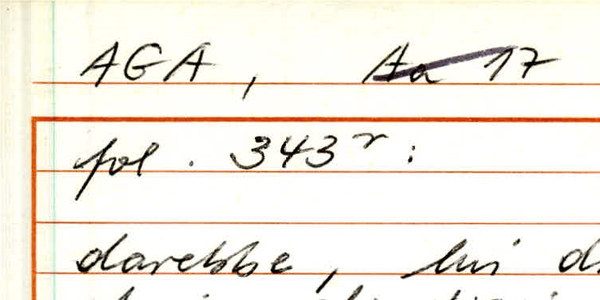 AGA, Aa 17
fol. 343r:
darebbe, lui